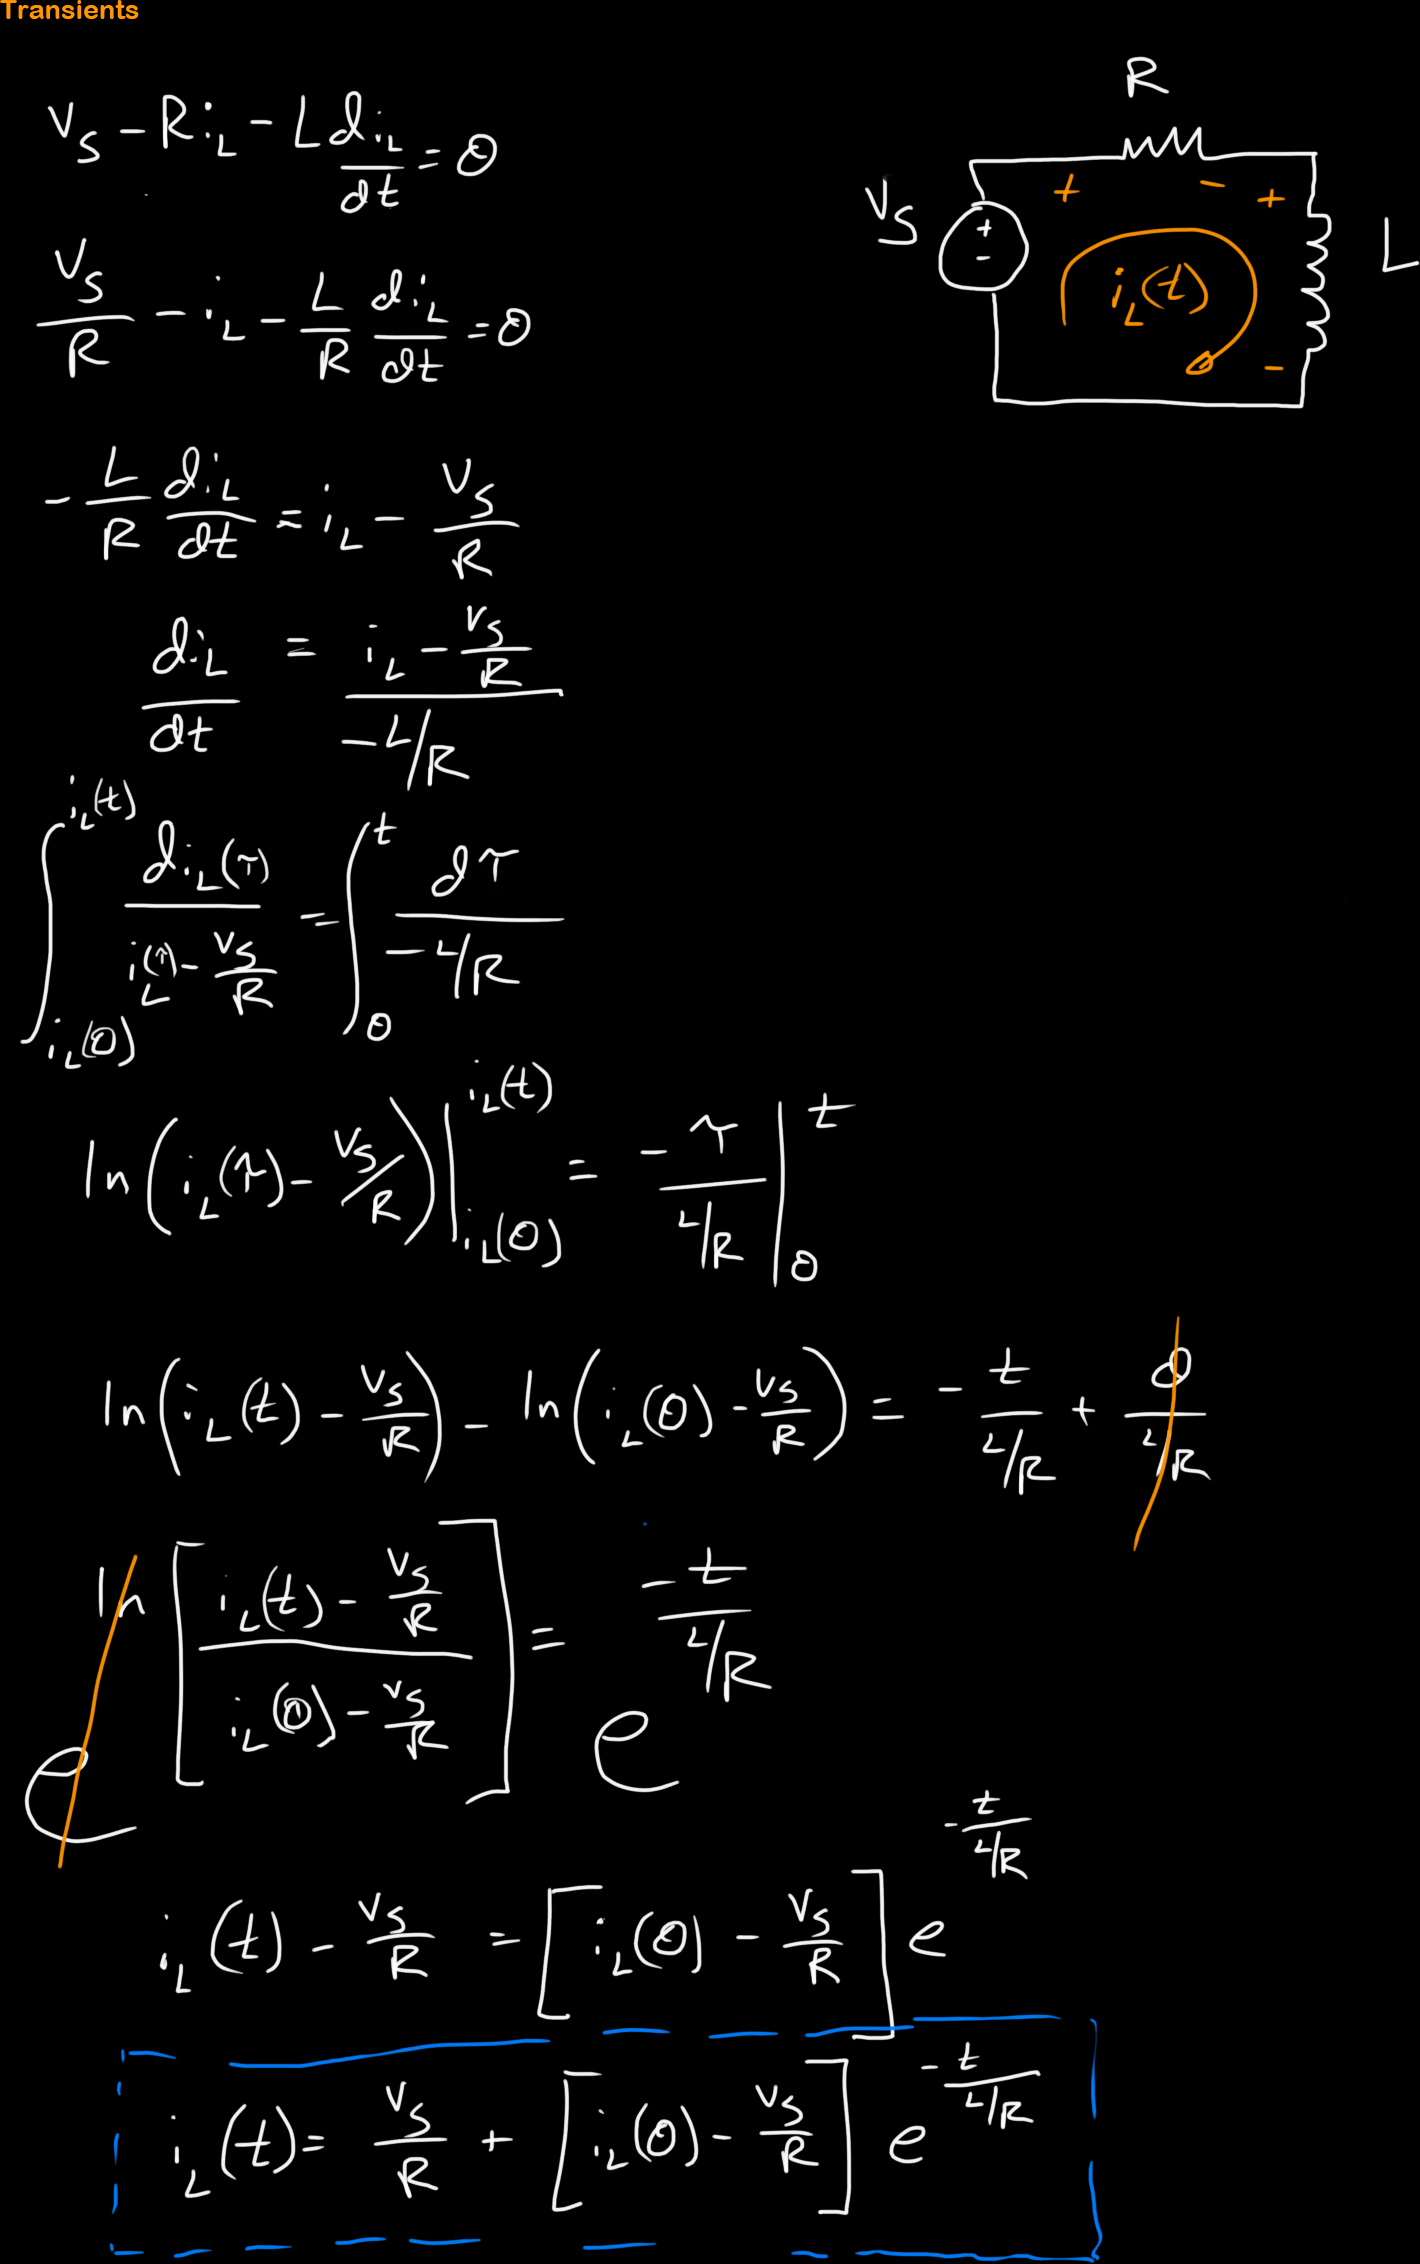 Transients
R
V_S - R i_L - L di_L/dt = 0
V_S
+
-
+ - +
L
i_L(t)
-
V_S/R - i_L - L/R di_L/dt = 0
-L/R di_L/dt = i_L - V_S/R
di_L/dt = (i_L - V_S/R)/(-L/R)
∫_{i_L(0)}^{i_L(t)} di_L(τ)/(i_L(τ) - V_S/R) = ∫_0^t dτ/(-L/R)
ln(i_L(τ) - V_S/R)|_{i_L(0)}^{i_L(t)} = -τ/(L/R)|_0^t
ln(i_L(t) - V_S/R) - ln(i_L(0) - V_S/R) = -t/(L/R) + 0/(L/R)
e^{ln[(i_L(t) - V_S/R)/(i_L(0) - V_S/R)]} = e^{-t/(L/R)}
i_L(t) - V_S/R = [i_L(0) - V_S/R] e^{-t/(L/R)}
i_L(t) = V_S/R + [i_L(0) - V_S/R] e^{-t/(L/R)}